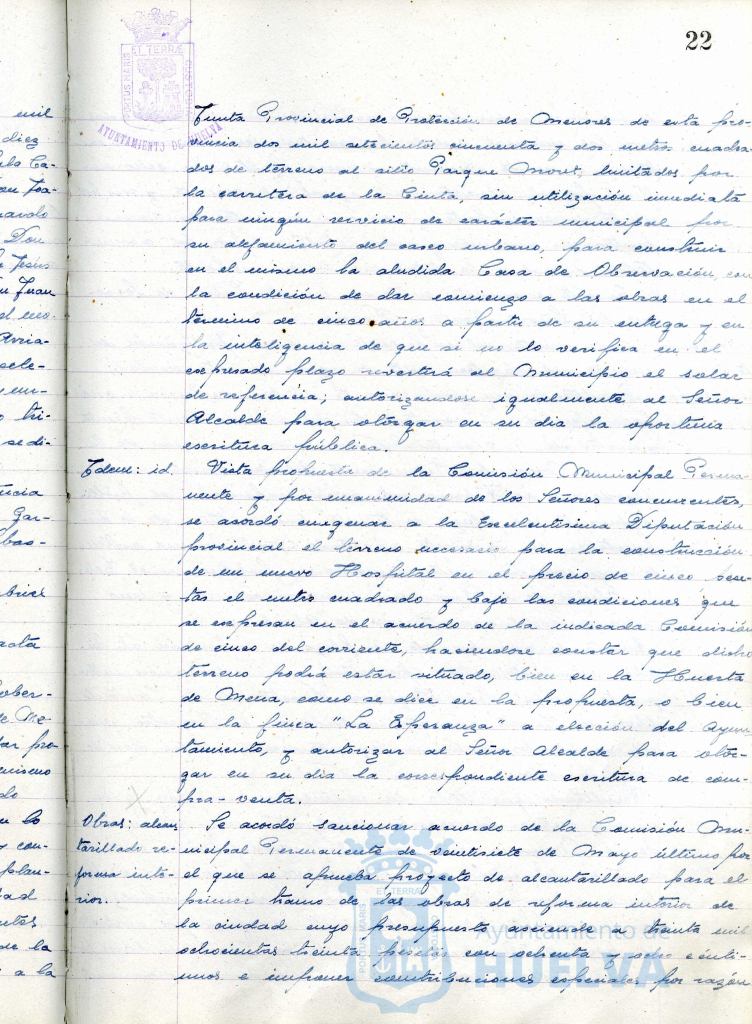 22
PORTUS MARIS ET TERRAE CUSTODIA
AYUNTAMIENTO DE HUELVA
mil
diez
Don
Jesús
Juan
Junta Provincial de Protección de Menores de esta pro-
vincia dos mil setecientos cincuenta y dos metros cuadra-
dos de terreno al sitio Parque Moret, limitados por
la carretera de la Cinta, sin utilización inmediata
para ningún servicio de carácter municipal por
su alejamiento del casco urbano, para construir
en el mismo la aludida Casa de Observación con
la condición de dar comienzo a las obras en el
término de cinco años a partir de su entrega y en
la inteligencia de que si no lo verifica en el
expresado plazo revertirá al Municipio el solar
de referencia; autorizandose igualmente al Señor
Alcalde para otorgar en su dia la oportuna
escritura pública.
Idem: id. Vista propuesta de la Comisión Municipal Perma-
nente y por unanimidad de los Señores concurrentes,
se acordó enagenar a la Excelentísima Diputación
provincial el terreno necesario para la construcción
de un nuevo Hospital en el precio de cinco pese-
tas el metro cuadrado y bajo las condiciones que
se expresan en el acuerdo de la indicada Comisión
de cinco del corriente, haciendose constar que dicho
terreno podrá estar situado, bien en la Huerta
de Mena, como se dice en la propuesta, o bien
en la finca "La Esperanza" a elección del Ayun-
tamiento, y autorizar al Señor Alcalde para otor-
gar en su dia la correspondiente escritura de com-
pra-venta.
Obras: alcan-
tarillado re-
forma inte-
rior.
Se acordó sancionar acuerdo de la Comisión Mu-
nicipal Permanente de veintisiete de Mayo último por
el que se aprueba proyecto de alcantarillado para el
primer tramo de las obras de reforma interior de
la ciudad cuyo presupuesto asciende a treinta mil
ochocientas treinta pesetas con ochenta y ocho cénti-
mos e imponer contribuciones especiales por razón
Ayuntamiento de
HUELVA